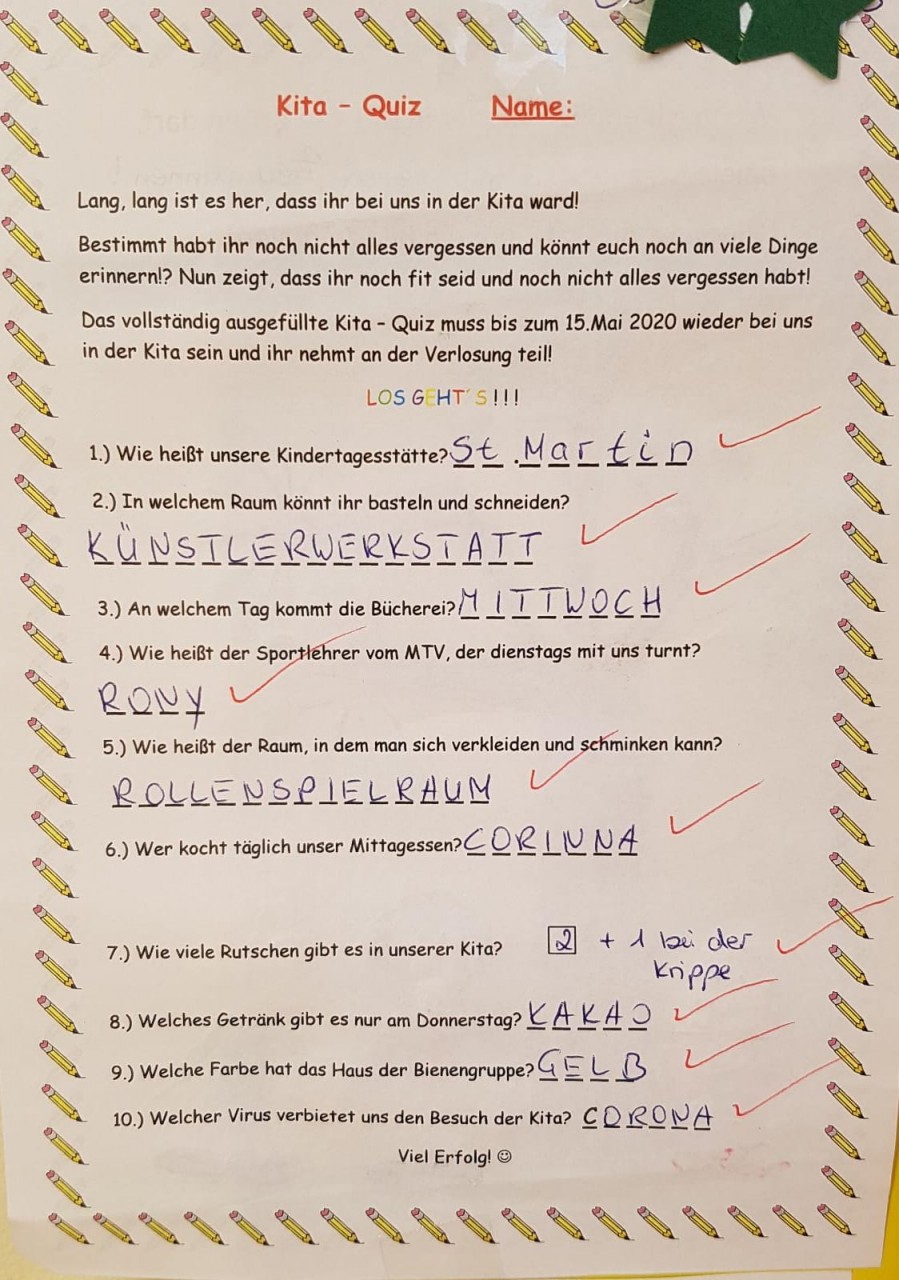 Kita - Quiz Name:
Lang, lang ist es her, dass ihr bei uns in der Kita ward!
Bestimmt habt ihr noch nicht alles vergessen und könnt euch noch an viele Dinge
erinnern!? Nun zeigt, dass ihr noch fit seid und noch nicht alles vergessen habt!
Das vollständig ausgefüllte Kita - Quiz muss bis zum 15.Mai 2020 wieder bei uns
in der Kita sein und ihr nehmt an der Verlosung teil!
LOS GEHT´S!!!
1.) Wie heißt unsere Kindertagesstätte? St. Martin
2.) In welchem Raum könnt ihr basteln und schneiden?
KÜNSTLERWERKSTATT
3.) An welchem Tag kommt die Bücherei? MITTWOCH
4.) Wie heißt der Sportlehrer vom MTV, der dienstags mit uns turnt?
RONY
5.) Wie heißt der Raum, in dem man sich verkleiden und schminken kann?
ROLLENSPIELRAUM
6.) Wer kocht täglich unser Mittagessen? CORINNA
7.) Wie viele Rutschen gibt es in unserer Kita? 2 + 1 bei der
Krippe
8.) Welches Getränk gibt es nur am Donnerstag? KAKAO
9.) Welche Farbe hat das Haus der Bienengruppe? GELB
10.) Welcher Virus verbietet uns den Besuch der Kita? CORONA
Viel Erfolg! ☺